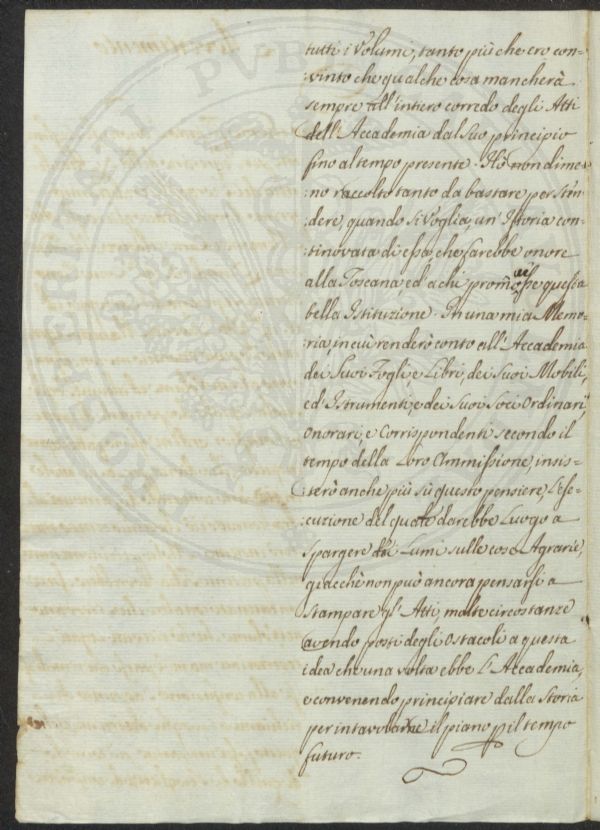 tutti i Volumi, tanto più che ero con-
:vinto che qualche cosa mancherà
sempre all'intiero corredo degli Atti
dell'Accademia dal Suo principio
fino al tempo presente. Hò nondime-
:no raccolto tanto da bastare per stèn-
:dere, quando si Voglia, un'Istoria con-
:tinovata di essa, che sarebbe onore
alla Toscana, ed a chi promosse questa
bella Istituzione. In una mia Memo-
:ria, in cui renderò conto all'Accademia
dei Suoi Fogli, e Libri, dei Suoi Mobili,
ed Istrumenti, e dei Suoi Soci Ordinari,
Onorari, e Corrispondenti secondo il
tempo della Loro Ammissione, insis-
:terò anche più sù questo pensiere, l'ese-
:cuzione del quale darebbe Luogo a
spargere dei Lumi sulle cose Agrarie,
giacchè non può ancora pensarsi a
stampare gl'Atti, molte circostanze
avendo posti degli Ostacoli a questa
idea che una volta ebbe l'Accademia,
e convenendo principiare dalla Storia
per intavolarne il piano p il tempo
futuro.
PROSPERITATI PUBL